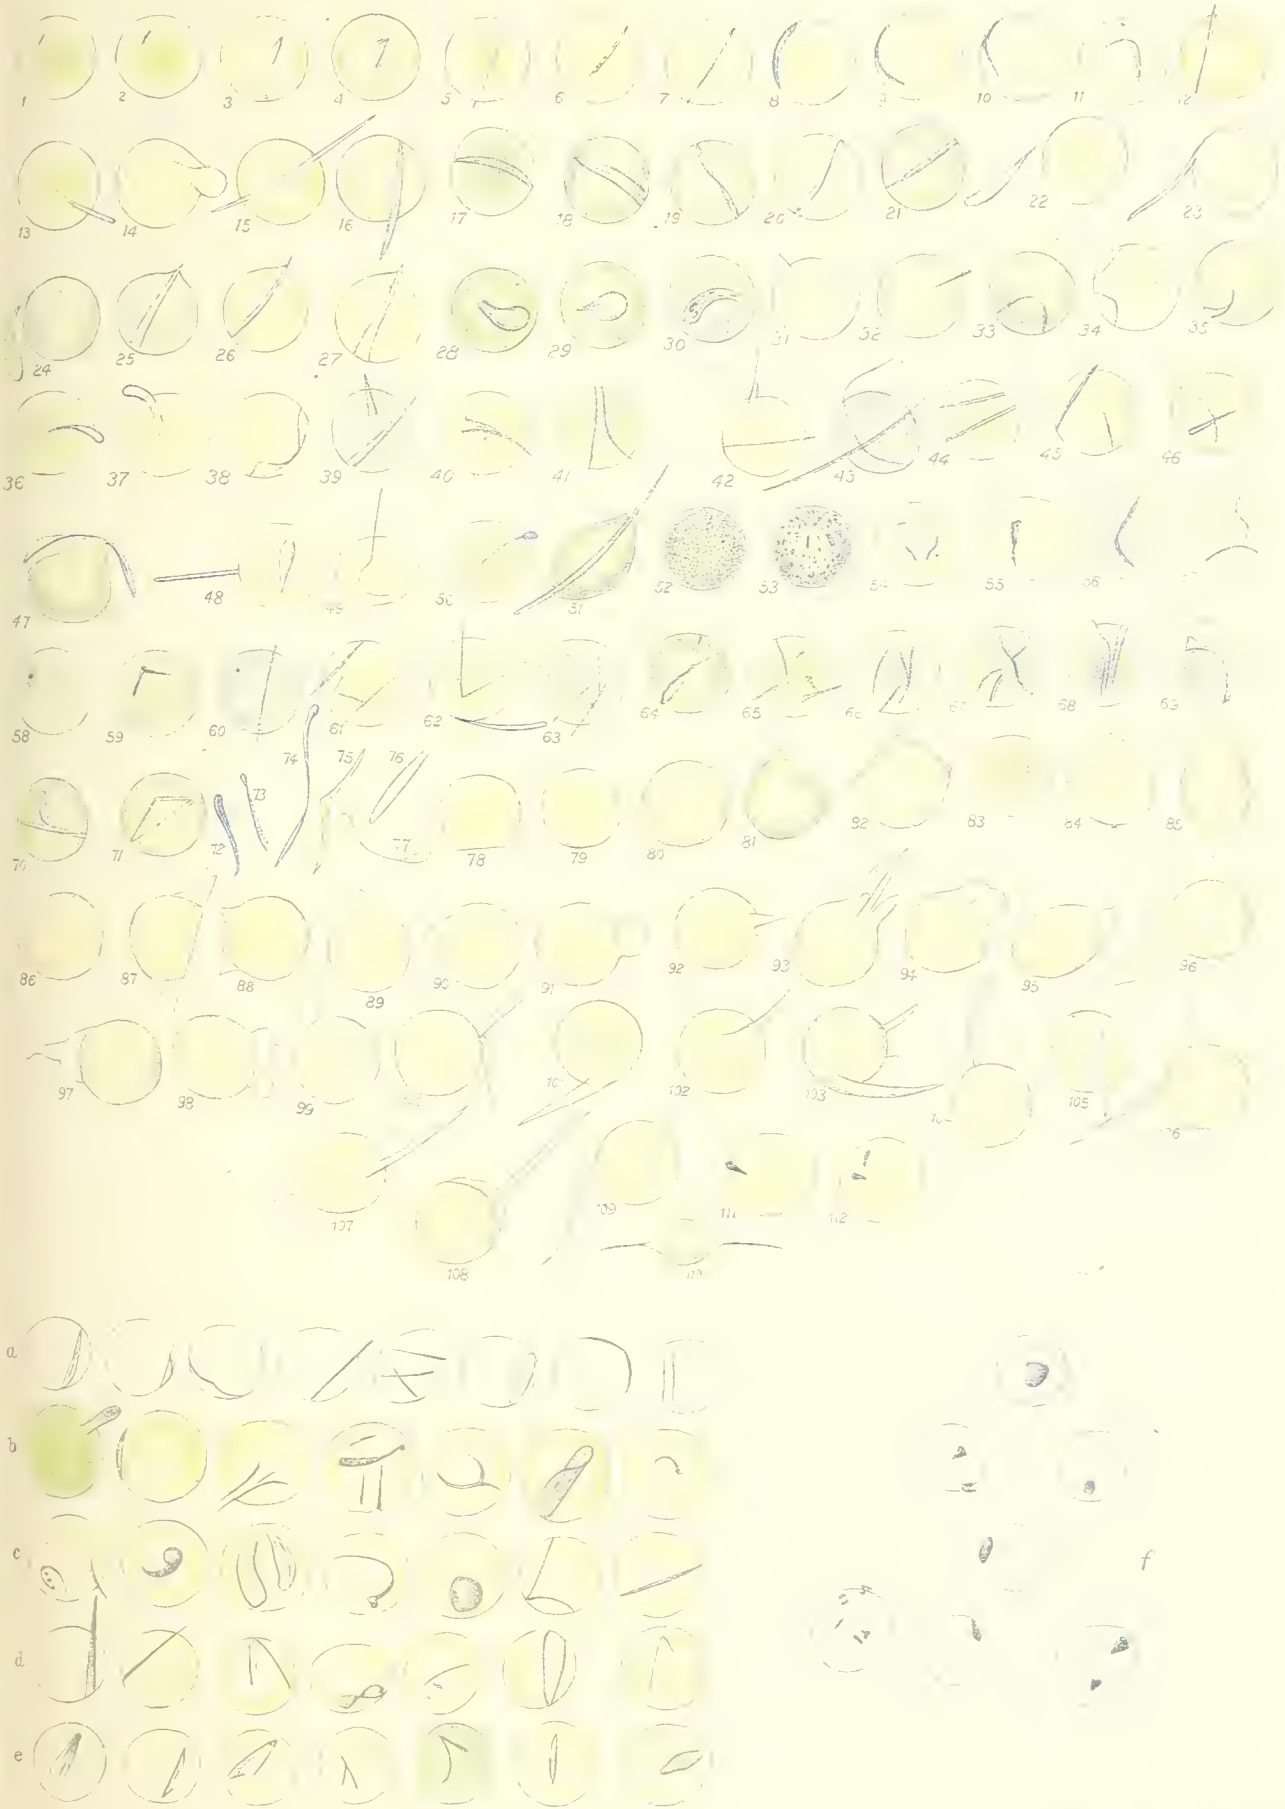 1 2 3 4 5 6 7 8 9 10 11 12
13 14 15 16 17 18 19 20 21 22 23
24 25 26 27 28 29 30 31 32 33 34 35
36 37 38 39 40 41 42 43 44 45 46
47 48 49 50 51 52 53 54 55 56
58 59 60 61 62 63 64 65 66 67 68 69
70 71 72 73 74 75 76 77 78 79 80 81 82 83 84 85
86 87 88 89 90 91 92 93 94 95 96
97 98 99 102 103 105
107 108 109 111 112
a
b
c
d
e
f